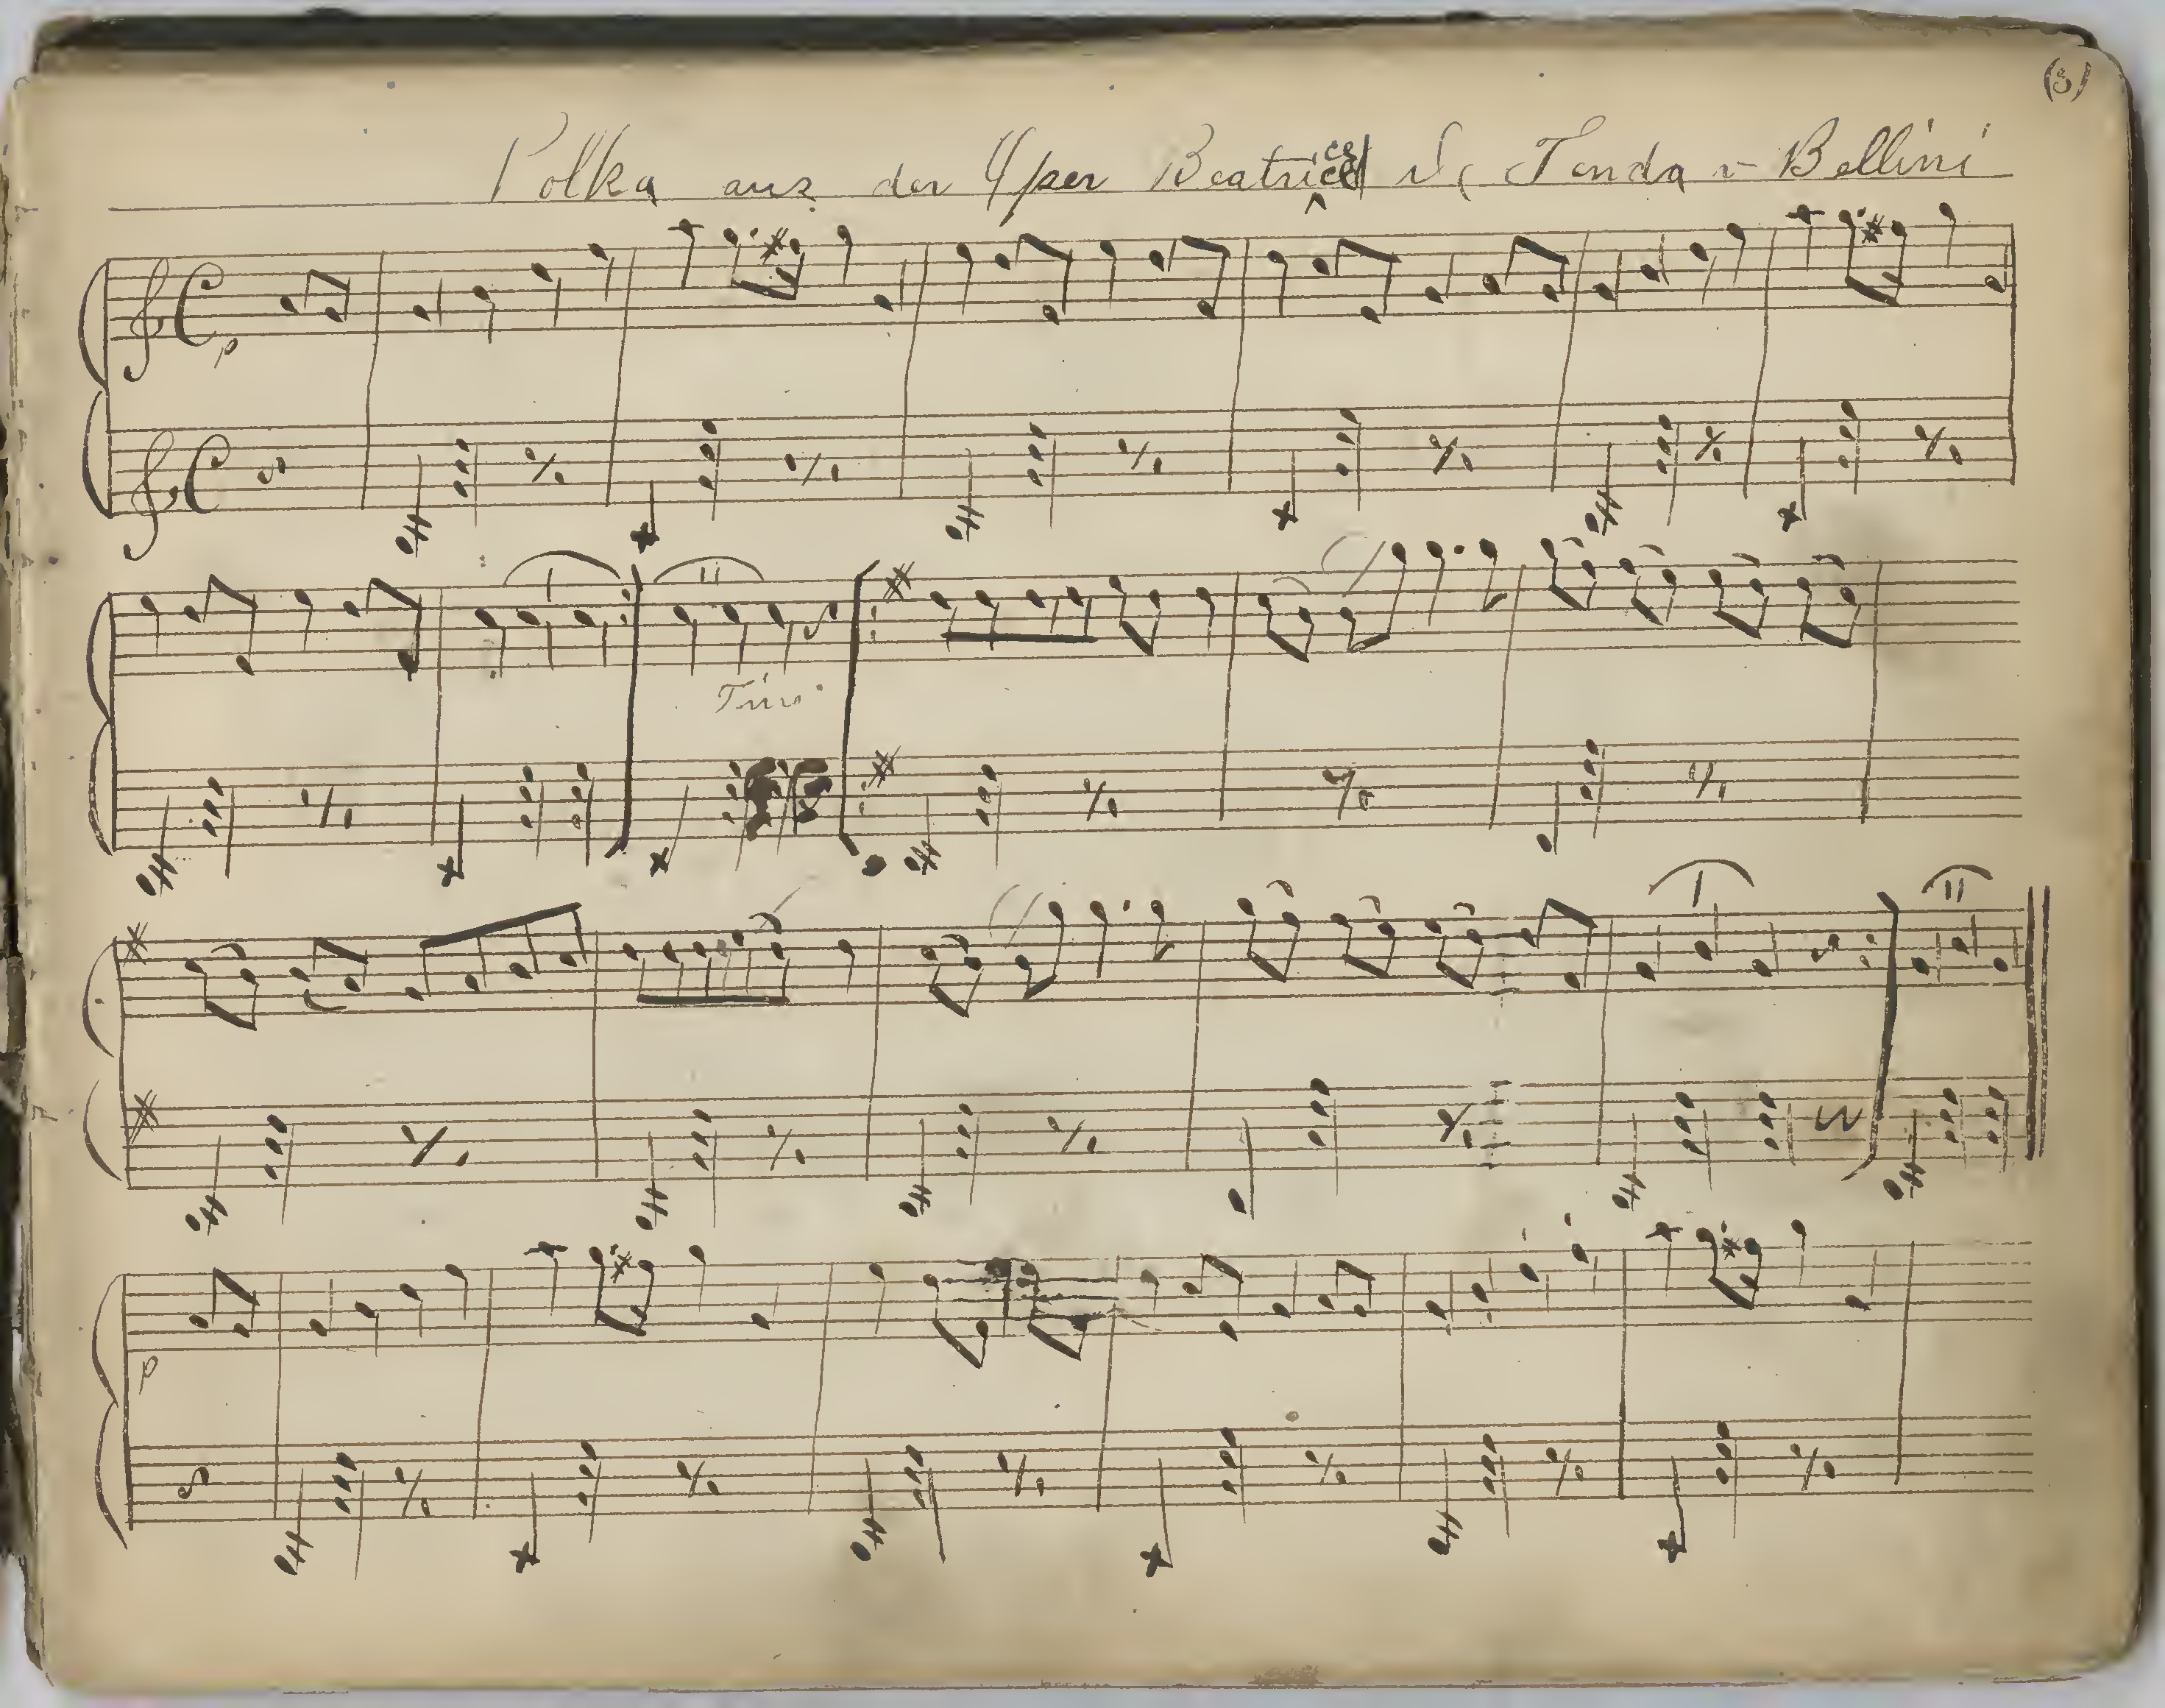 (3)
Polka aus der Oper Beatrice di Tenda v Bellini
p
I II
Trio
I II
p